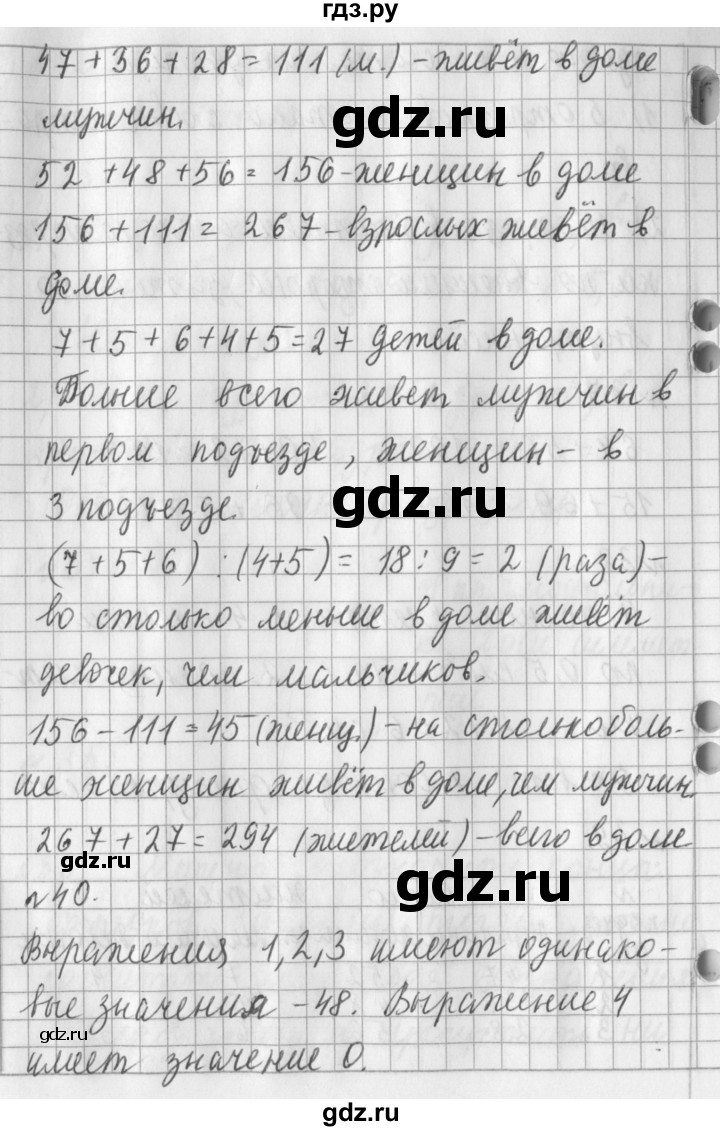 гдз.ру
47+36+28=111 (м.) - живёт в доме
мужчин.
gdz.ru
52 +48+56= 156-женщин в доме
156+111= 267-взрослых живёт в
доме.
7+5+6+4+5=27 детей в доме.
Больше всего живет мужчин в
первом подъезде, женщин - в
gdz.ru
3 подъезде.
(7+5+6) : (4+5)= 18: 9=2 (раза)-
во столько меньше в доме живёт
девочек, чем мальчиков.
gdz.ru
156-111=45 (женщ.) - на столько боль-
ше женщин живёт в доме, чем мужчин.
267+27=294 (жителей) - всего в доме
gdz.ru
gdz.ru
№40.
Выражения 1,2,3 имеют одинако-
вые значения - 48. Выражение 4
gdz.ru
имеет значение 0.
gdz.ru